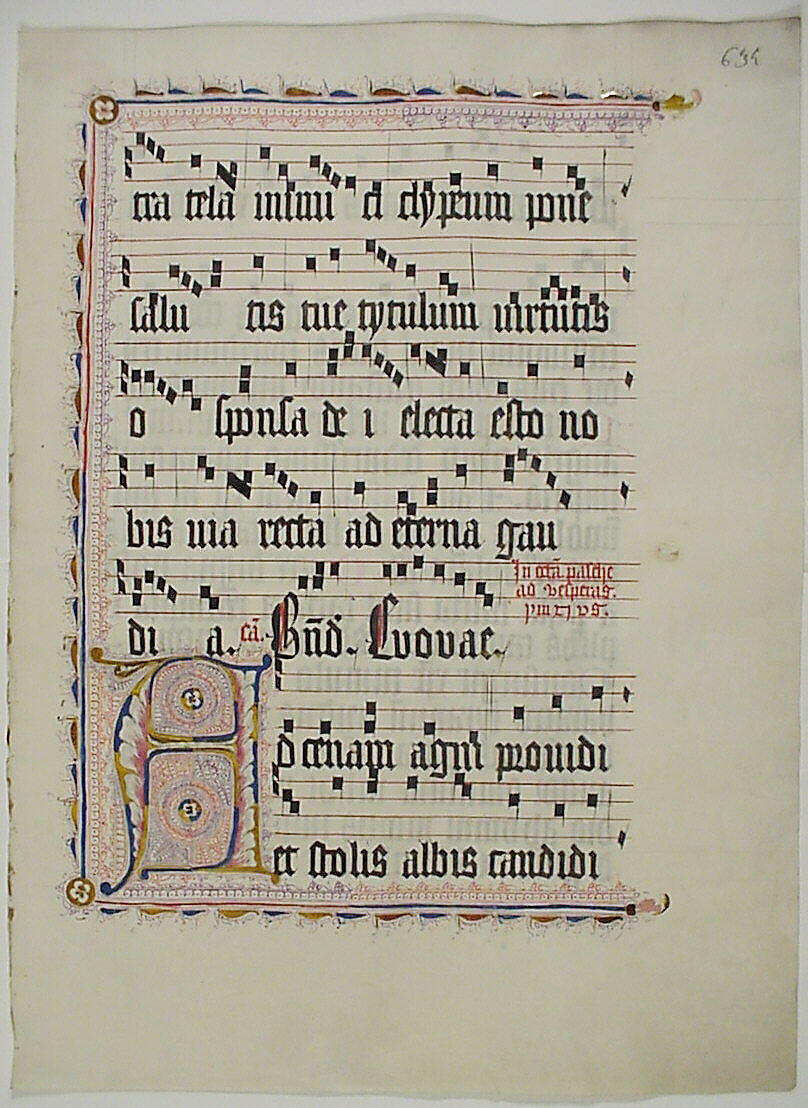 634
tra tela inimi ci clypeum pone
salu tis tue tytulum uirtutis
o sponsa de i electa esto no
bis uia recta ad eterna gau
di a. cā. Bn̄d. Euouae.
In octā. pasche
ad vesperas.
Ad cenam agni prouidi
et stolis albis candidi